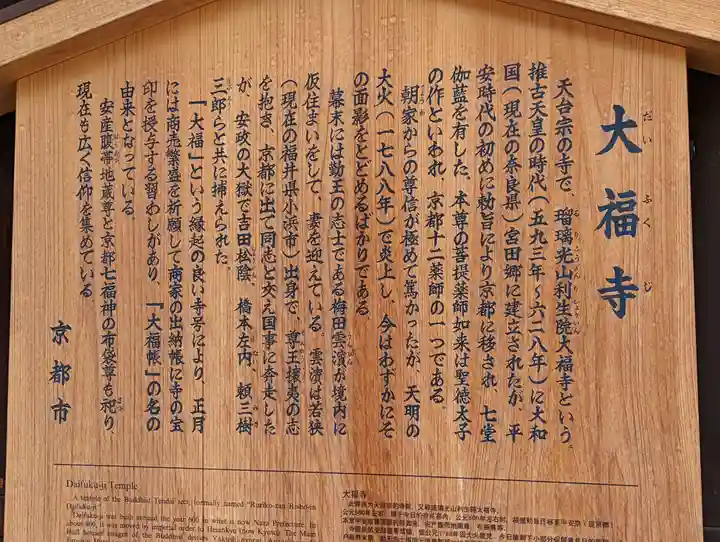 大福寺
だいふくじ
天台宗の寺で、瑠璃光山利生院大福寺という。
推古天皇の時代(五九三年〜六二八年)に大和
国(現在の奈良県)宮田郷に建立されたが、平
安時代の初めに勅旨により京都に移され、七堂
伽藍を有した。本尊の菩提薬師如来は聖徳太子
の作といわれ、京都十二薬師の一つである。
朝家からの尊信が極めて篤かったが、天明の
大火(一七八八年)で炎上し、今はわずかにそ
の面影をとどめるばかりである。
幕末には勤王の志士である梅田雲濱が境内に
仮住まいをして、妻を迎えている。雲濱は若狭
(現在の福井県小浜市)出身で、尊王攘夷の志
を抱き、京都に出て同志と交え国事に奔走した
が、安政の大獄で吉田松陰、橋本左内、頼三樹
三郎らと共に捕えられた。
「大福」という縁起の良い寺号により、正月
には商売繁盛を祈願して商家の出納帳に寺の宝
印を授与する習わしがあり、「大福帳」の名の
由来となっている。
安産腹帯地蔵尊と京都七福神の布袋尊も祀り、
現在も広く信仰を集めている
京都市
Daifuku-ji Temple
A temple of the Buddhist Tendai sect, formally named "Ruriko-zan Risho-in
Daifuku-ji".
Daifuku-ji was built around the year 600 in what is now Nara Prefecture. In
about 800, it was moved by imperial order to Heiankyo (now Kyoto). The Main
大福寺